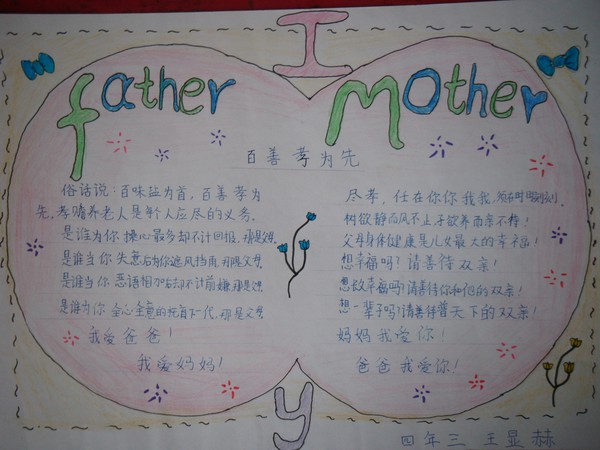 I
father
mother
百善孝为先
俗话说：百味盐为首，百善孝为
先，孝赡养老人是每个人应尽的义务，
是谁为你操心最多却不计回报，那是父母，
是谁当你失意后为你遮风挡雨，那是父母，
是谁当你恶语相加后却不计前嫌，那是父母，
是谁为你全心全意的抚育下一代，那是父母
我爱爸爸！
我爱妈妈！
尽孝，任在你你我我，须在时时刻刻，
树欲静而风不止子欲养而亲不待！
父母身体健康是儿女最大的幸福！
想幸福吗？请善待双亲！
幸福吗？请善待你和他的双亲！
想一辈子吗？请善待普天下的双亲！
妈妈我爱你！
爸爸我爱你！
y
四年三 王显赫